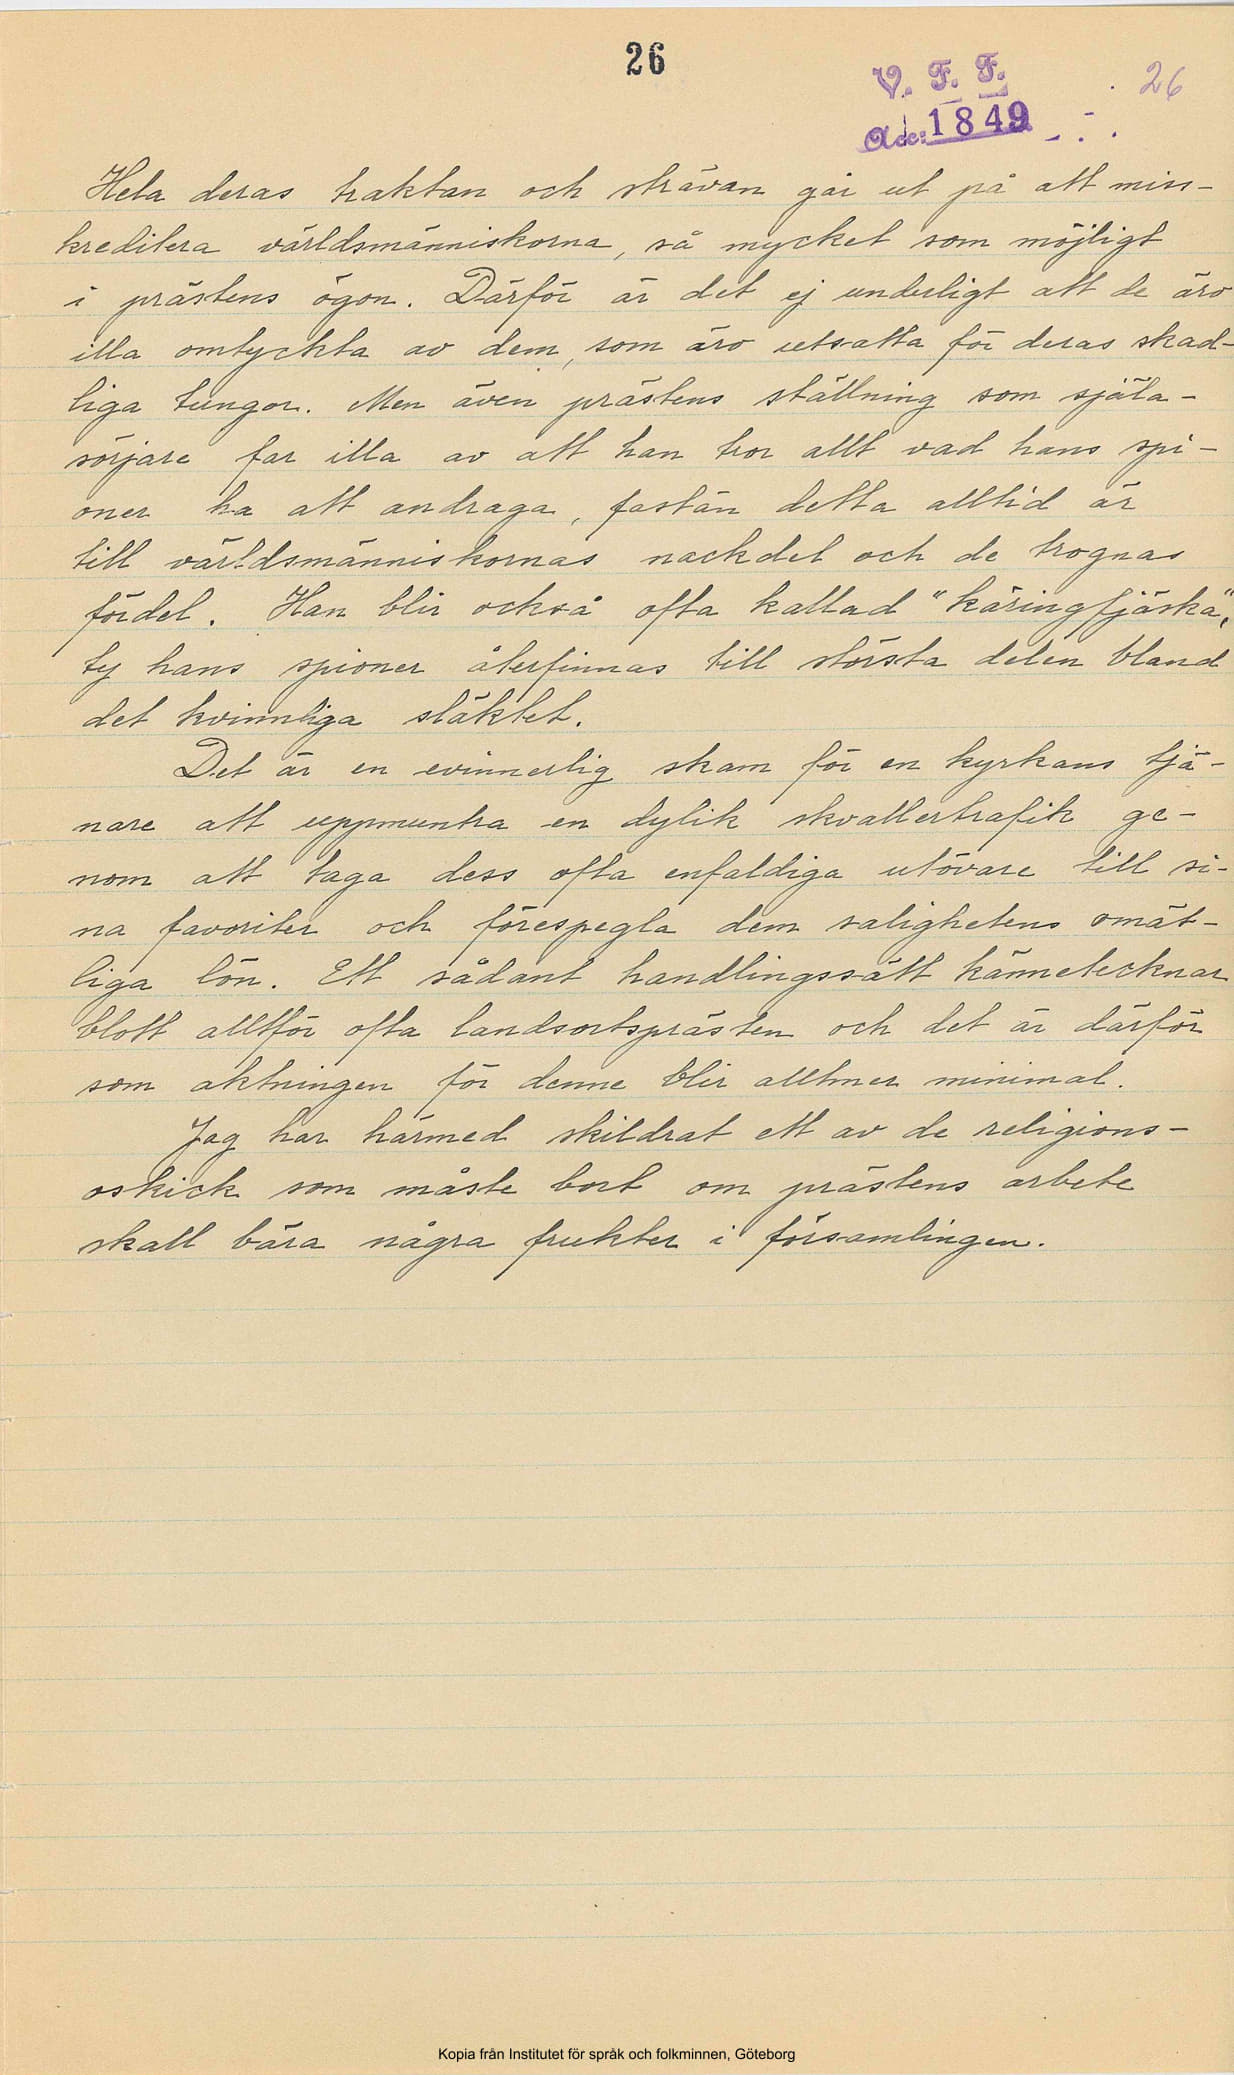 26
V. F. F.
26
Acc: 1849
Hela deras traktan och strävan går ut på att miss-
kreditera världsmänniskorna, så mycket som möjligt
i prästens ögon. Därför är det ej underligt att de äro
illa omtyckta av dem, som äro utsatta för deras skad-
liga tungor. Men även prästens ställning som själa-
sörjare far illa av att han tror allt vad hans spi-
oner ha att andraga, fastän detta alltid är
till världsmänniskornas nackdel och de trognas
fördel. Han blir också ofta kallad "käringfjäska",
ty hans spioner återfinnas till största delen bland
det kvinnliga släktet.
Det är en evinnerlig skam för en kyrkans tjä-
nare att uppmuntra en dylik skvallertrafik ge-
nom att taga dess ofta enfaldiga utövare till si-
na favoriter och förespegla dem salighetens omät-
liga lön. Ett sådant handlingssätt kännetecknar
blott alltför ofta landsortsprästen och det är därför
som aktningen för denne blir alltmer minimal.
Jag har härmed skildrat ett av de religions-
oskick som måste bort om prästens arbete
skall bära några frukter i församlingen.
Kopia från Institutet för språk och folkminnen, Göteborg